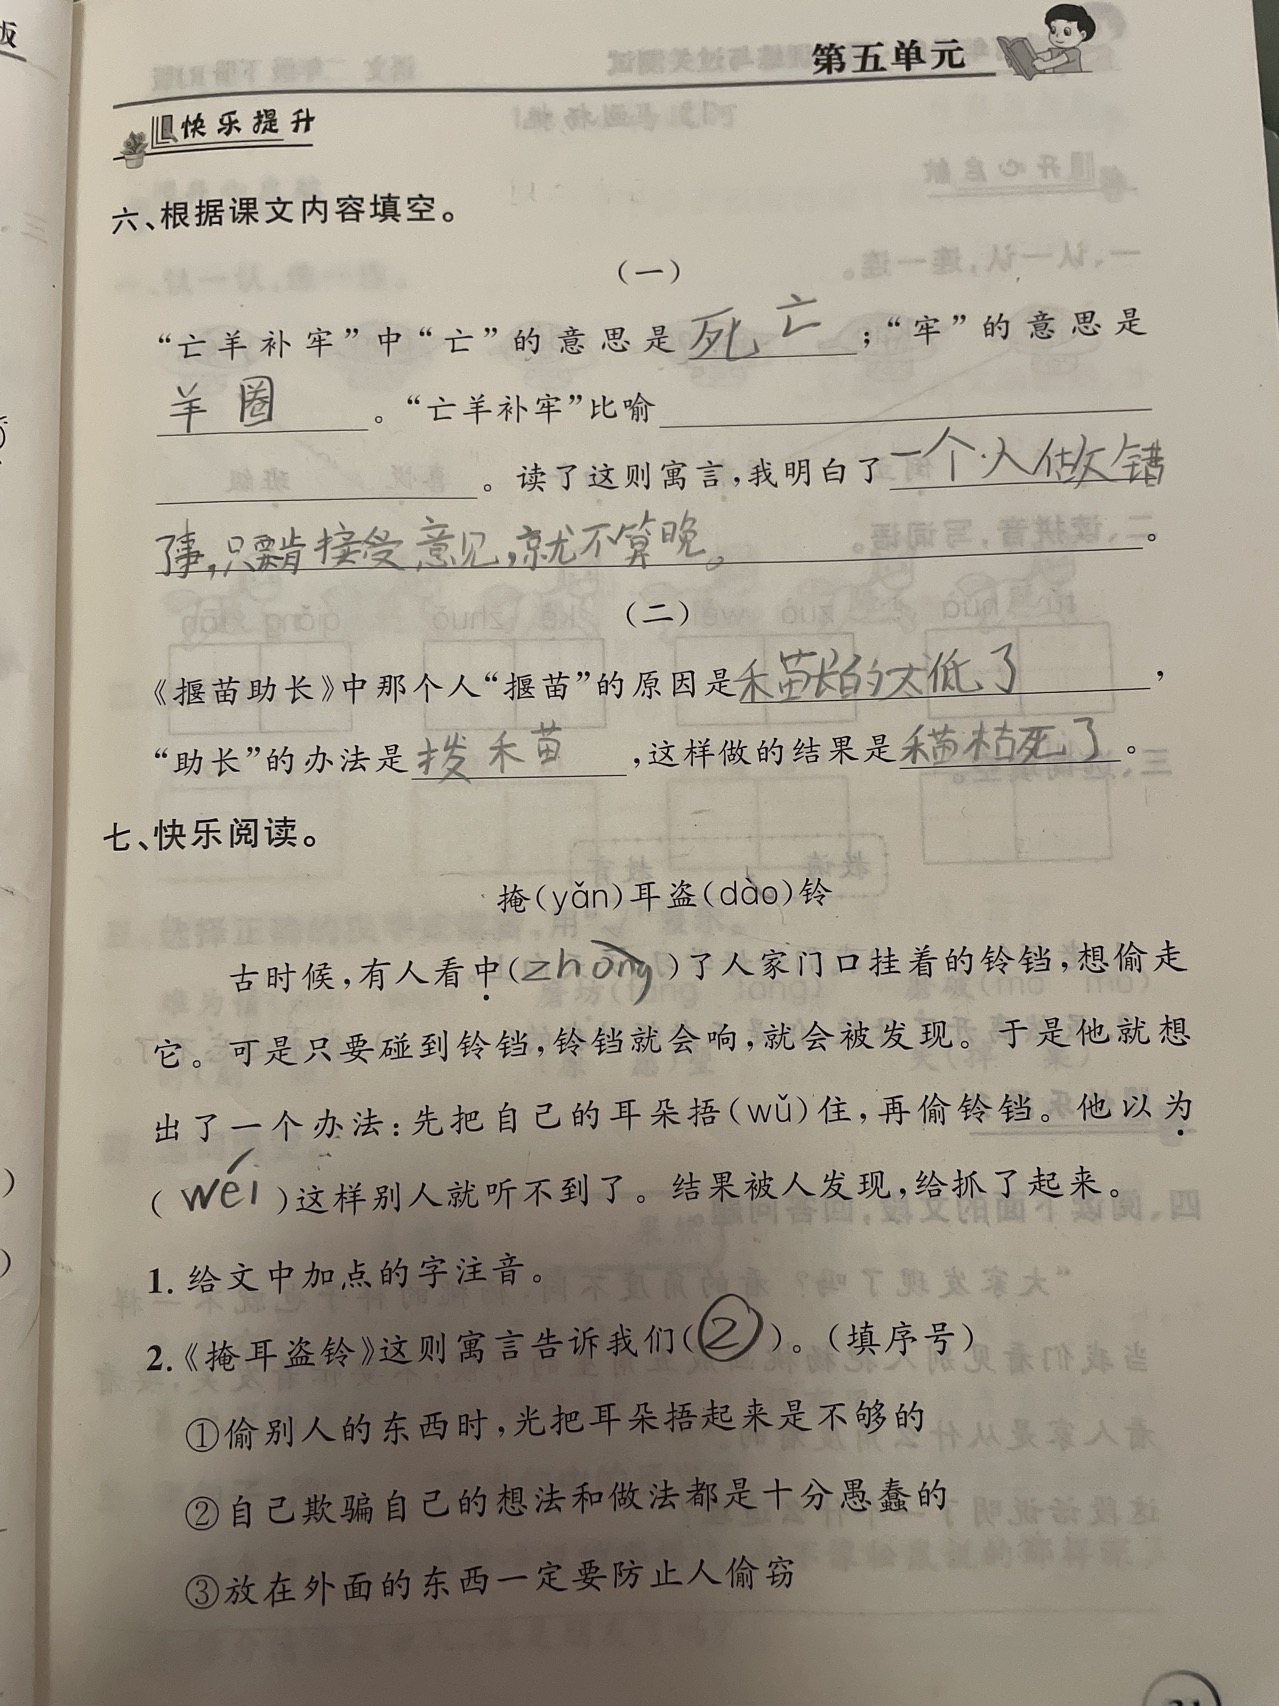 第五单元
快乐提升
六、根据课文内容填空。
（一）
“亡羊补牢”中“亡”的意思是死亡；“牢”的意思是
羊圈。“亡羊补牢”比喻
。读了这则寓言，我明白了一个人做错
了事，只要肯接受意见，就不算晚。。
（二）
《揠苗助长》中那个人“揠苗”的原因是禾苗长的太低了，
“助长”的办法是拨禾苗，这样做的结果是禾苗枯死了。
七、快乐阅读。
掩(yǎn)耳盗(dào)铃
古时候，有人看中(zhōng)了人家门口挂着的铃铛，想偷走
它。可是只要碰到铃铛，铃铛就会响，就会被发现。于是他就想
出了一个办法：先把自己的耳朵捂(wǔ)住，再偷铃铛。他以为
(wéi)这样别人就听不到了。结果被人发现，给抓了起来。
1. 给文中加点的字注音。
2.《掩耳盗铃》这则寓言告诉我们(②)。（填序号）
①偷别人的东西时，光把耳朵捂起来是不够的
②自己欺骗自己的想法和做法都是十分愚蠢的
③放在外面的东西一定要防止人偷窃